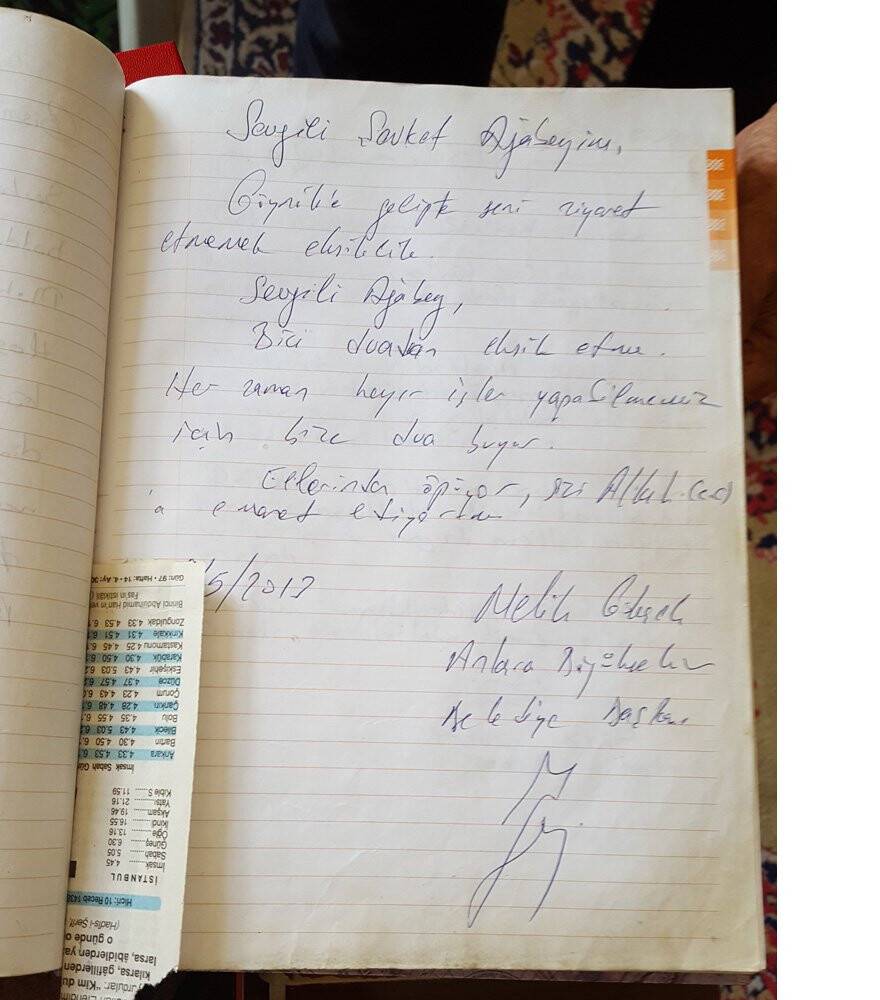 Sevgili Şevket Ağabeyim,
Göynük'e gelipte seni ziyaret
etmemek eksiklik.
Sevgili Ağabey,
Bizi duadan eksik etme.
Her zaman hayır işler yapabilmemiz
için bize dua buyur.
Ellerinden öpüyor, sizi Allah (c.c)
'a emanet ediyorum
/5/2017
Melih Gökçek
Ankara Büyükşehir
Belediye Başkanı
Gün: 97 • Hafta: 14 - 4. Ay: 30
Fas'ın istiklâli
Birinci Abdülhamid Han'ın ve
Zonguldak 4.33 4.53 6.1
Kırıkkale 4.31 4.51 6.1
Kastamonu 4.25 4.45 6.1
Karabük 4.30 4.50 6.
Eskişehir 4.43 5.03 6.2
Düzce 4.37 4.57 6.2
Çorum 4.23 4.43 6.0
Çankırı 4.28 4.48 6.1
Bolu 4.35 4.55 6.2
Bilecik 4.43 5.03 6.2
Bartın 4.30 4.50 6.1
Ankara 4.33 4.53 6.1
İmsak Sabah Gün
Kıble S. 11.59
Yatsı 21.16
Akşam 19.46
İkindi 16.55
Öğle 13.16
Güneş 6.30
Sabah 5.05
İmsak 4.45
İSTANBUL
Hicrî: 10 Receb 1438
(Hadîs-i Şerîf
o günde o
larsa, âbidlerden ya
kılarsa, gâfillerden
urdular: "Kim du